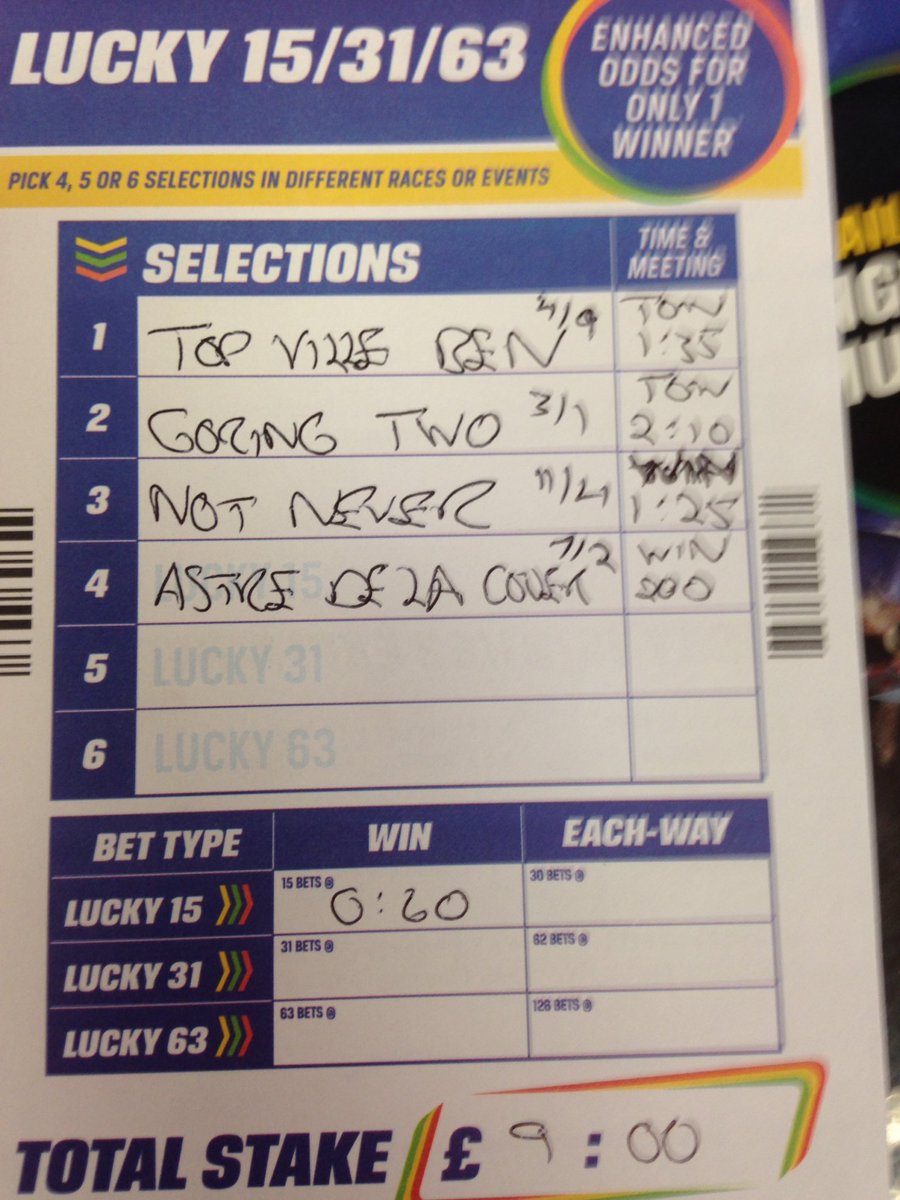 LUCKY 15/31/63
ENHANCED
ODDS FOR
ONLY 1
WINNER
PICK 4, 5 OR 6 SELECTIONS IN DIFFERENT RACES OR EVENTS
SELECTIONS
TIME &
MEETING
1 TOP VILLE BEN 4/9 TOW 1:35
2 GOING TWO 3/1 TOW 2:10
3 NOT NEVER 11/4 1:25
4 ASTRE DE LA COUER 7/2 WIN 200
LUCKY 15
5 LUCKY 31
6 LUCKY 63
BET TYPE WIN EACH-WAY
LUCKY 15 15 BETS @ 0:60 30 BETS @
LUCKY 31 31 BETS @ 62 BETS @
LUCKY 63 63 BETS @ 126 BETS @
TOTAL STAKE £ 9:00